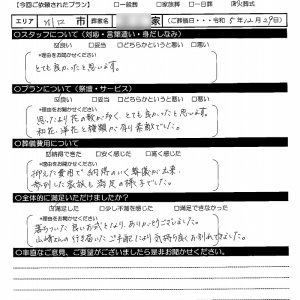 【今回ご依頼されたプラン】 □一般葬 □家族葬 □一日葬 ☑火葬式
エリア 川口 市 葬家名 家 (ご葬儀日・・令和5年12月29日)
○スタッフについて(対応・言葉遣い・身だしなみ)
☑良い □妥当 □どちらかというと悪い □悪い
*理由をお聞かせください
とても良かったと思います。
○プランについて(祭壇・サービス)
☑良い □妥当 □どちらかというと悪い □悪い
*理由をお聞かせください
思ったより花の数が多く、とても良かったと思います。
和花、洋花と種類が有り素敵でした。
○葬儀費用について
☑納得できた □安く感じた □高く感じた
*理由をお聞かせください
抑えた費用で納得のいく葬儀が出来、
参列した家族も満足の様子でした。
○全体的に満足いただけましたか?
☑満足した □少し不満を感じた □満足できなかった
*理由をお聞かせください
落ちついた良いお式となり、ありがとうございました。
山崎さんの行き届いたご手配により気持ち良くお別れできました。
○率直なご意見、ご要望がございましたら是非お聞かせください。